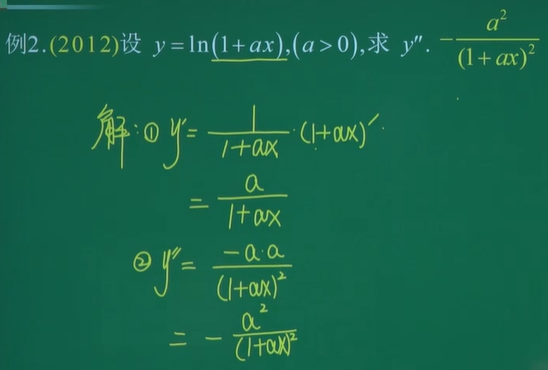 例2.(2012)设 y=ln(1+ax),(a>0),求 y″. -a²/(1+ax)²
解:① y′= 1/(1+ax)·(1+ax)′
= a/(1+ax)
② y″= -a·a/(1+ax)²
= -a²/(1+ax)²